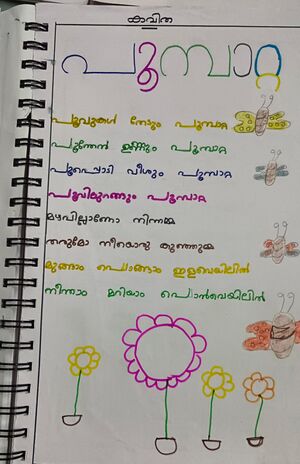 കവിത
പൂമ്പാറ്റ
പൂവുകൾ തോറും പൂമ്പാറ്റ
പൂന്തേൻ ഉണ്ണും പൂമ്പാറ്റ
പൂമ്പൊടി വീശും പൂമ്പാറ്റ
പൂവിലുറങ്ങും പൂമ്പാറ്റ
മഴവില്ലാണോ നിന്നമ്മ
തരുമോ നീയൊരു കുഞ്ഞുമ്മ
മുങ്ങാം പൊങ്ങാം ഇളവെയിലിൽ
നീന്താം മറിയാം പൊൻവെയിലിൽ